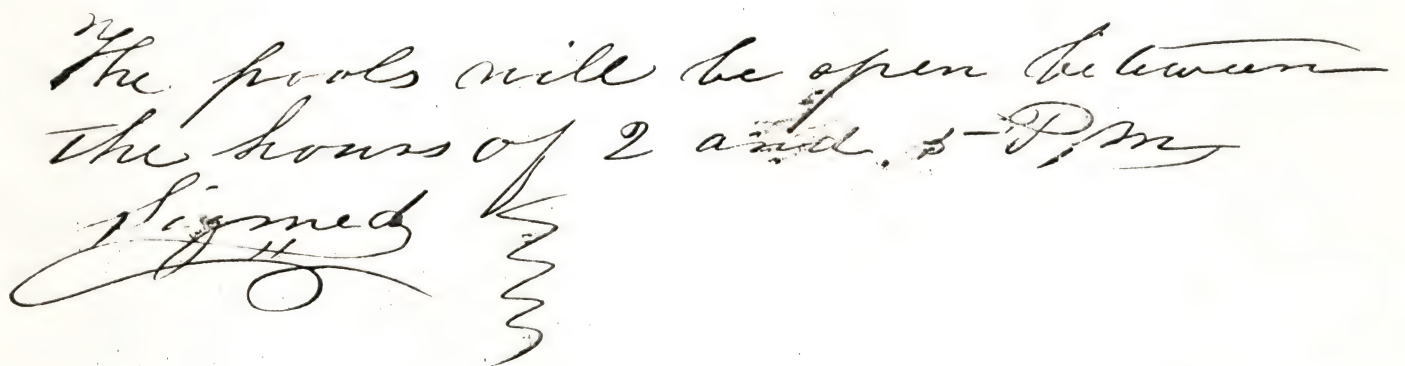 The pools will be open between
the hours of 2 and 5 P.M,
Signed